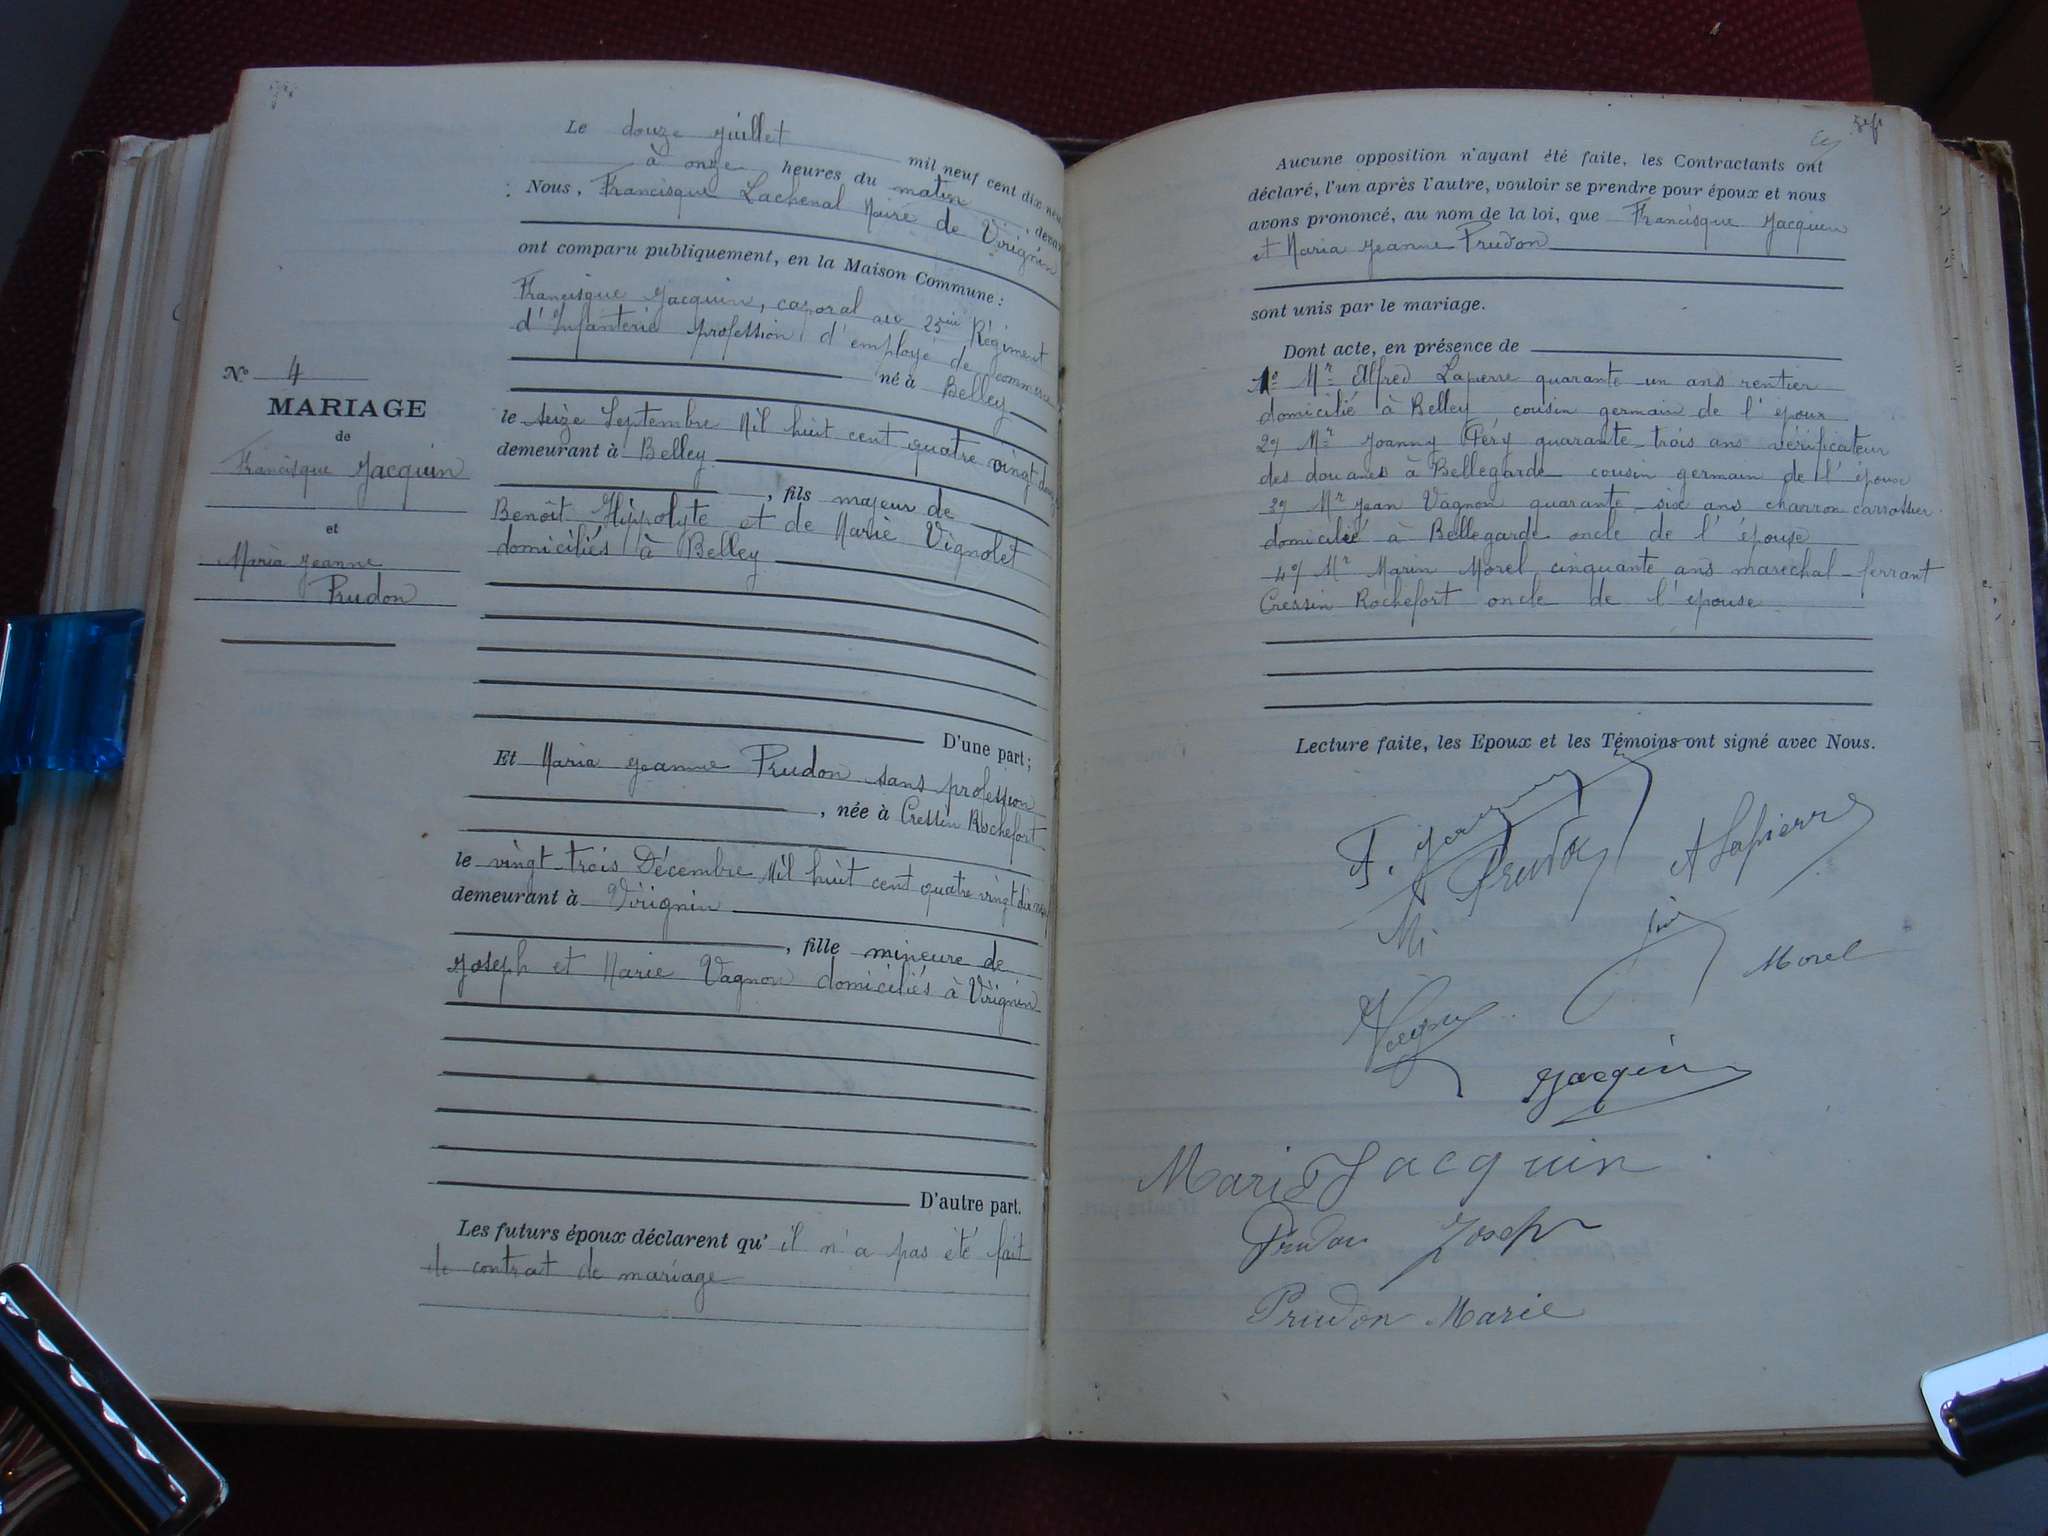 Le douze juillet mil neuf cent dix neuf
à onze heures du matin, devant
Nous, Francisque Lachenal Maire de Virignin
ont comparu publiquement, en la Maison Commune :
Francisque Jacquin, caporal au 23me Régiment
d'Infanterie profession d'employé de commerce
né à Belley
le seize Septembre Mil huit cent quatre vingt
demeurant à Belley
, fils majeur de
Benoît Hippolyte et de Marie Vignolet
domiciliés à Belley
D'une part ;
Et Maria Jeanne Prudon sans profession
, née à Cressin Rochefort
le vingt-trois Décembre Mil huit cent quatre vingt dix
demeurant à Virignin
, fille mineure de
Joseph et Marie Vagnon domiciliés à Virignin
D'autre part.
Les futurs époux déclarent qu' il n'a pas été fait
de contrat de mariage
No 4
MARIAGE
de
Francisque Jacquin
et
Maria Jeanne
Prudon
Aucune opposition n'ayant été faite, les Contractants ont
déclaré, l'un après l'autre, vouloir se prendre pour époux et nous
avons prononcé, au nom de la loi, que Francisque Jacquin
et Maria Jeanne Prudon
sont unis par le mariage.
Dont acte, en présence de
1o Mr Alfred Lapierre quarante un ans rentier
domicilié à Belley cousin germain de l'époux
2o Mr Joanny quarante-trois ans vérificateur
des douanes à Bellegarde cousin germain de l'époux
3o Mr Jean Vagnon quarante six ans charron carrossier
domicilié à Bellegarde oncle de l'épouse
4o Mr Marin Morel cinquante ans maréchal-ferrant
Cressin Rochefort oncle de l'épouse
Lecture faite, les Epoux et les Témoins ont signé avec Nous.
F. Jacquin
M Prudon
A Lapierre
Morel
Jacquin
Marie Jacquin
Prudon Joseph
Prudon Marie